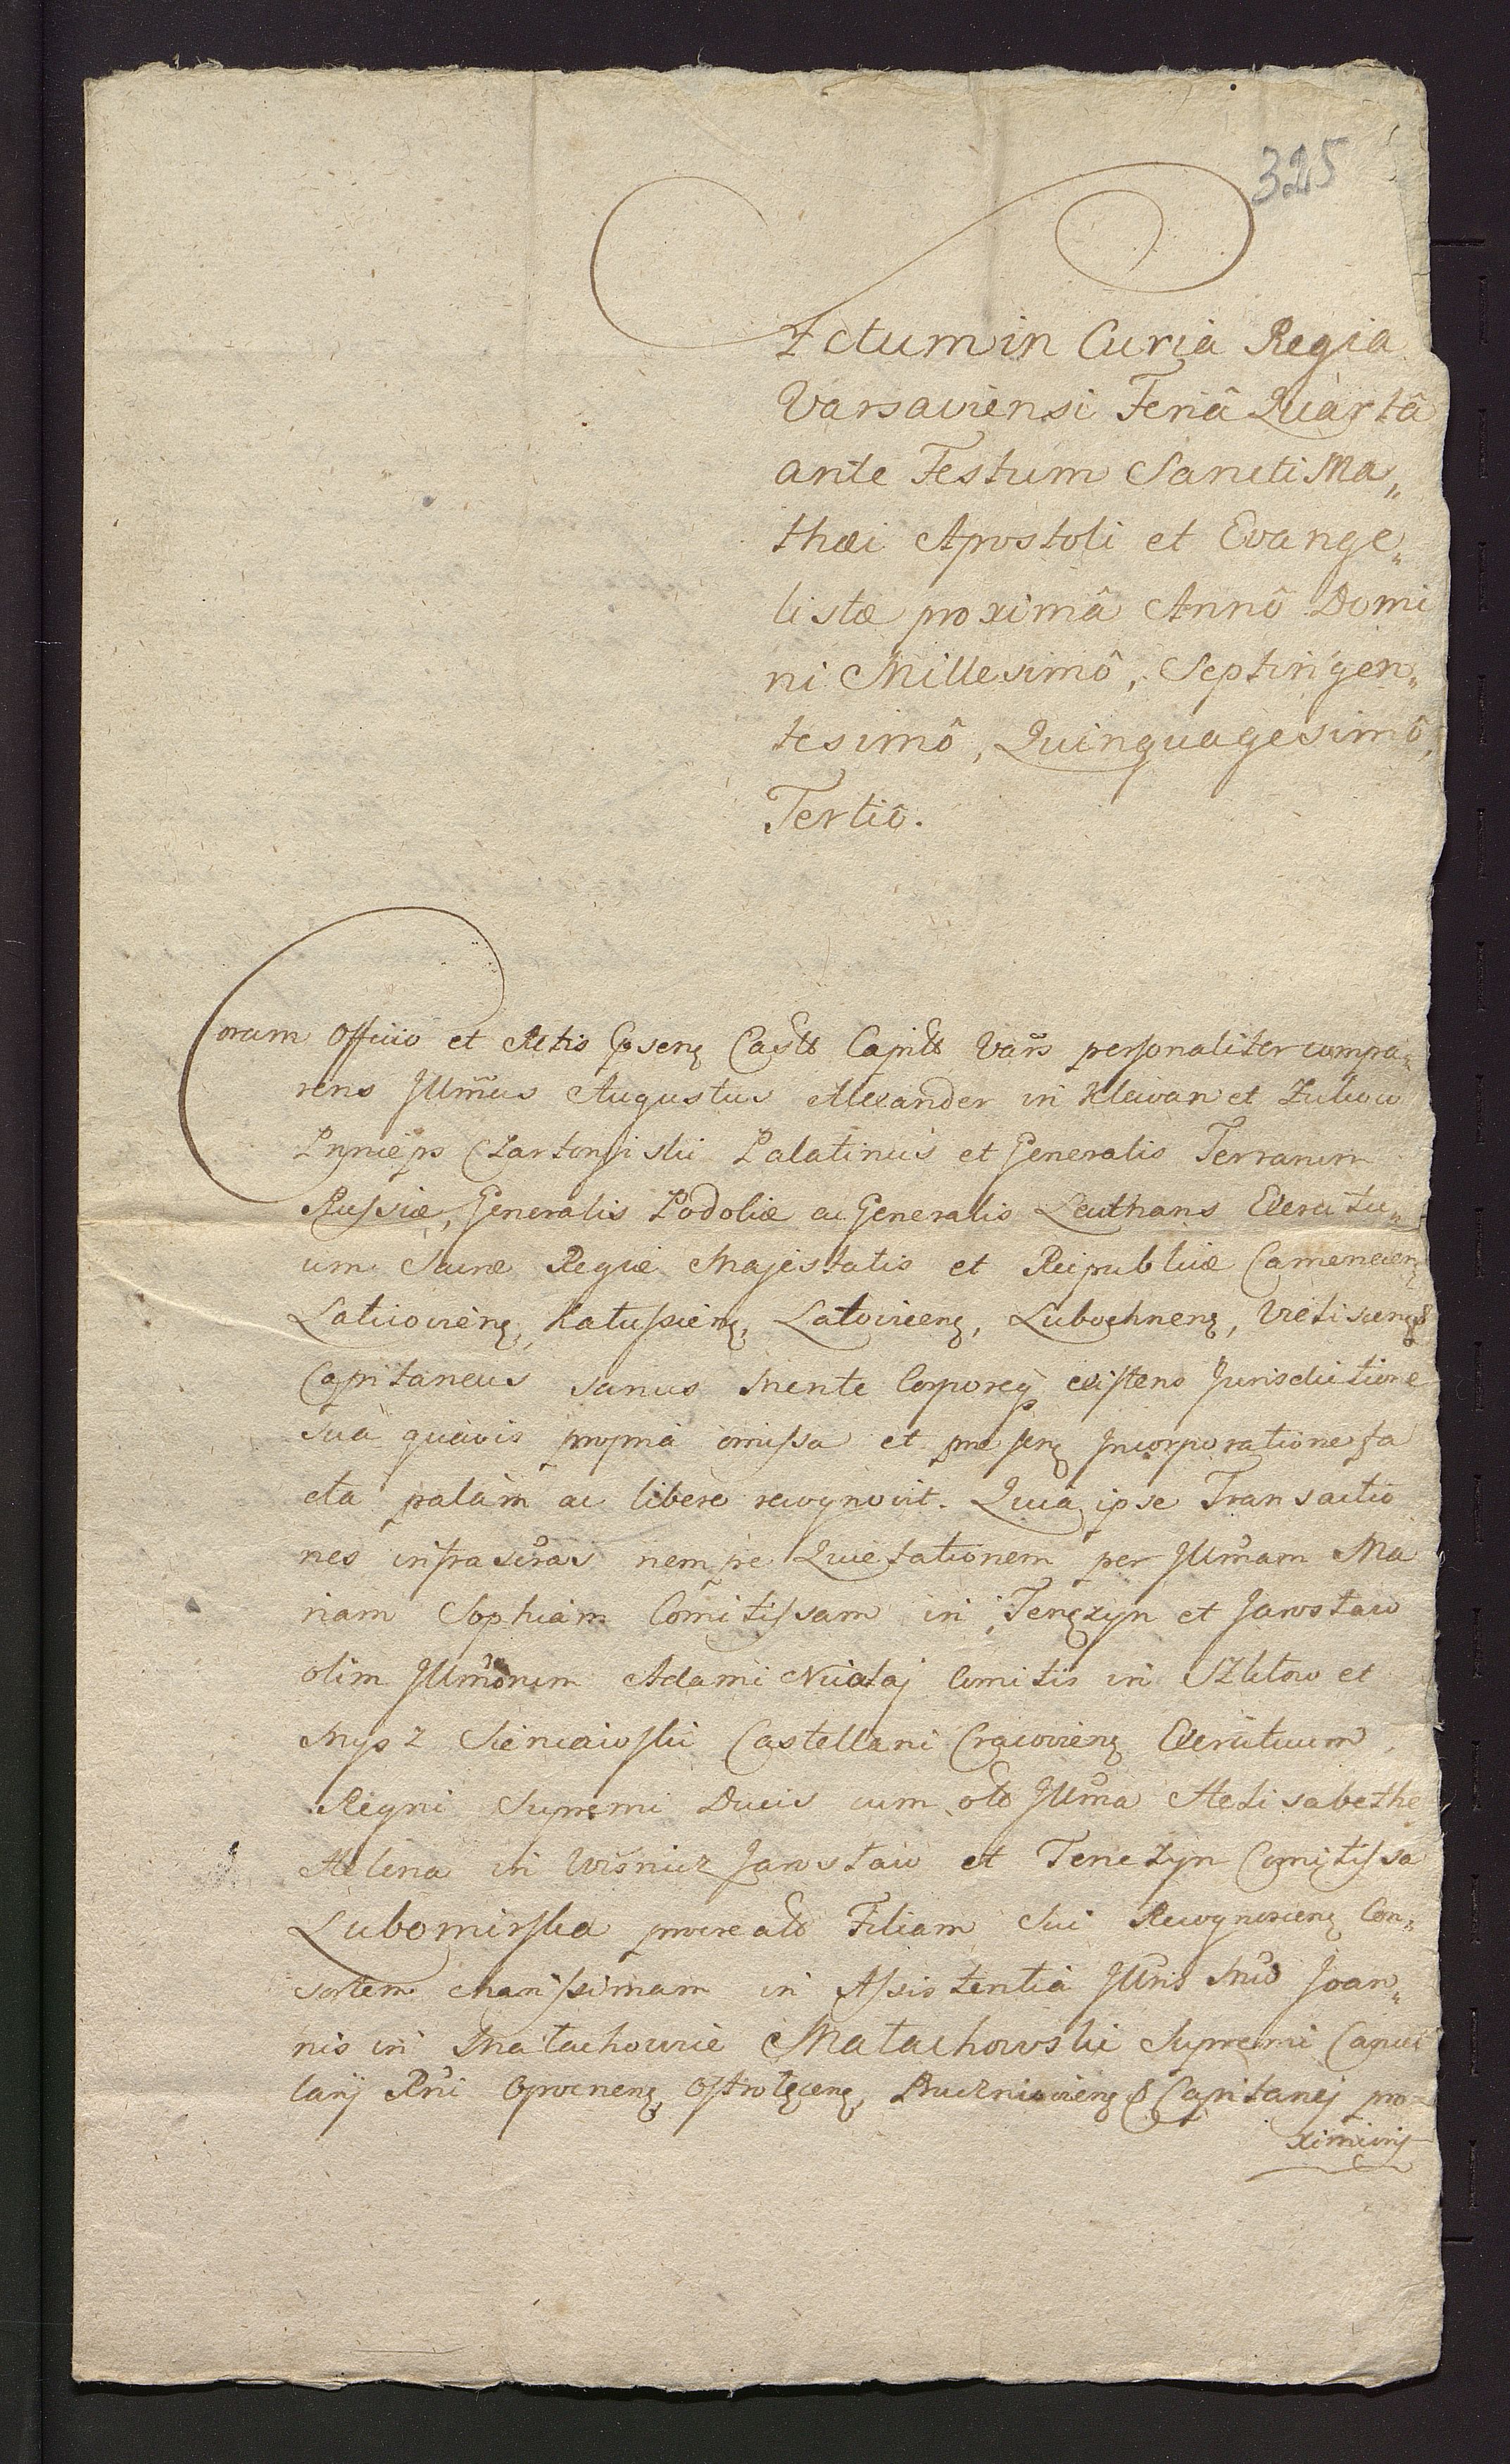 325
Actum in Curia Regia
Varsaviensi Feriâ Quartâ
ante Festum Sancti Ma„
thæi Apostoli et Evange„
listæ proximâ Annô Domi
ni Millesimô, Septingen„
tesimô, Quinquagesimô,
Tertiô.
Coram Officio et Actis pnsenꝫ Castr Capitl Vars personaliter compa„
rens Illmus Augustus Alexander in Klewan et Zukow
Prynceps Czartoryiski Palatinus et Generalis Terrarum
Russiæ, Generalis Podoliæ ac Generalis Leuthans Exercitu„
um Sacræ Regiæ Majestatis et Reipublicæ Camenecenꝫ
Laticovienꝫ, Katussienꝫ, Latovicenꝫ, Lubochnenꝫ,
Capitaneus sanus Mente Corporeqꝫ existens Jurisdictione
sua quavis propria omissa et præsenꝫ Incorporatione fa
cta palàm ac liberè recognovit. Quia ipse Transactio
nes infrascras nempe Quietationem per Illmam Ma
riam Sophiam Comitissam in Tenczyn et Jarosław
olim Illmorum Adami Nicolaj Comitis in Szkłow et
Mysz Sieniawski Castellani Cracovienꝫ Exercituum
Regni Supremi Ducis cum olo Illma Helisabethe
Helena in Wisnicz Jarosław et Tenczyn Comitissa
Lubomirska procreato Filiam sui Recognoscenꝫ Con„
sortem charissimam in Assistentia Illris Mcı Joan„
nis in Małachowice Małachowski Supremi Cancel
larij Rni Opocnenꝫ, Ostrołęcenꝫ, & Capitanej pro
ximiorij